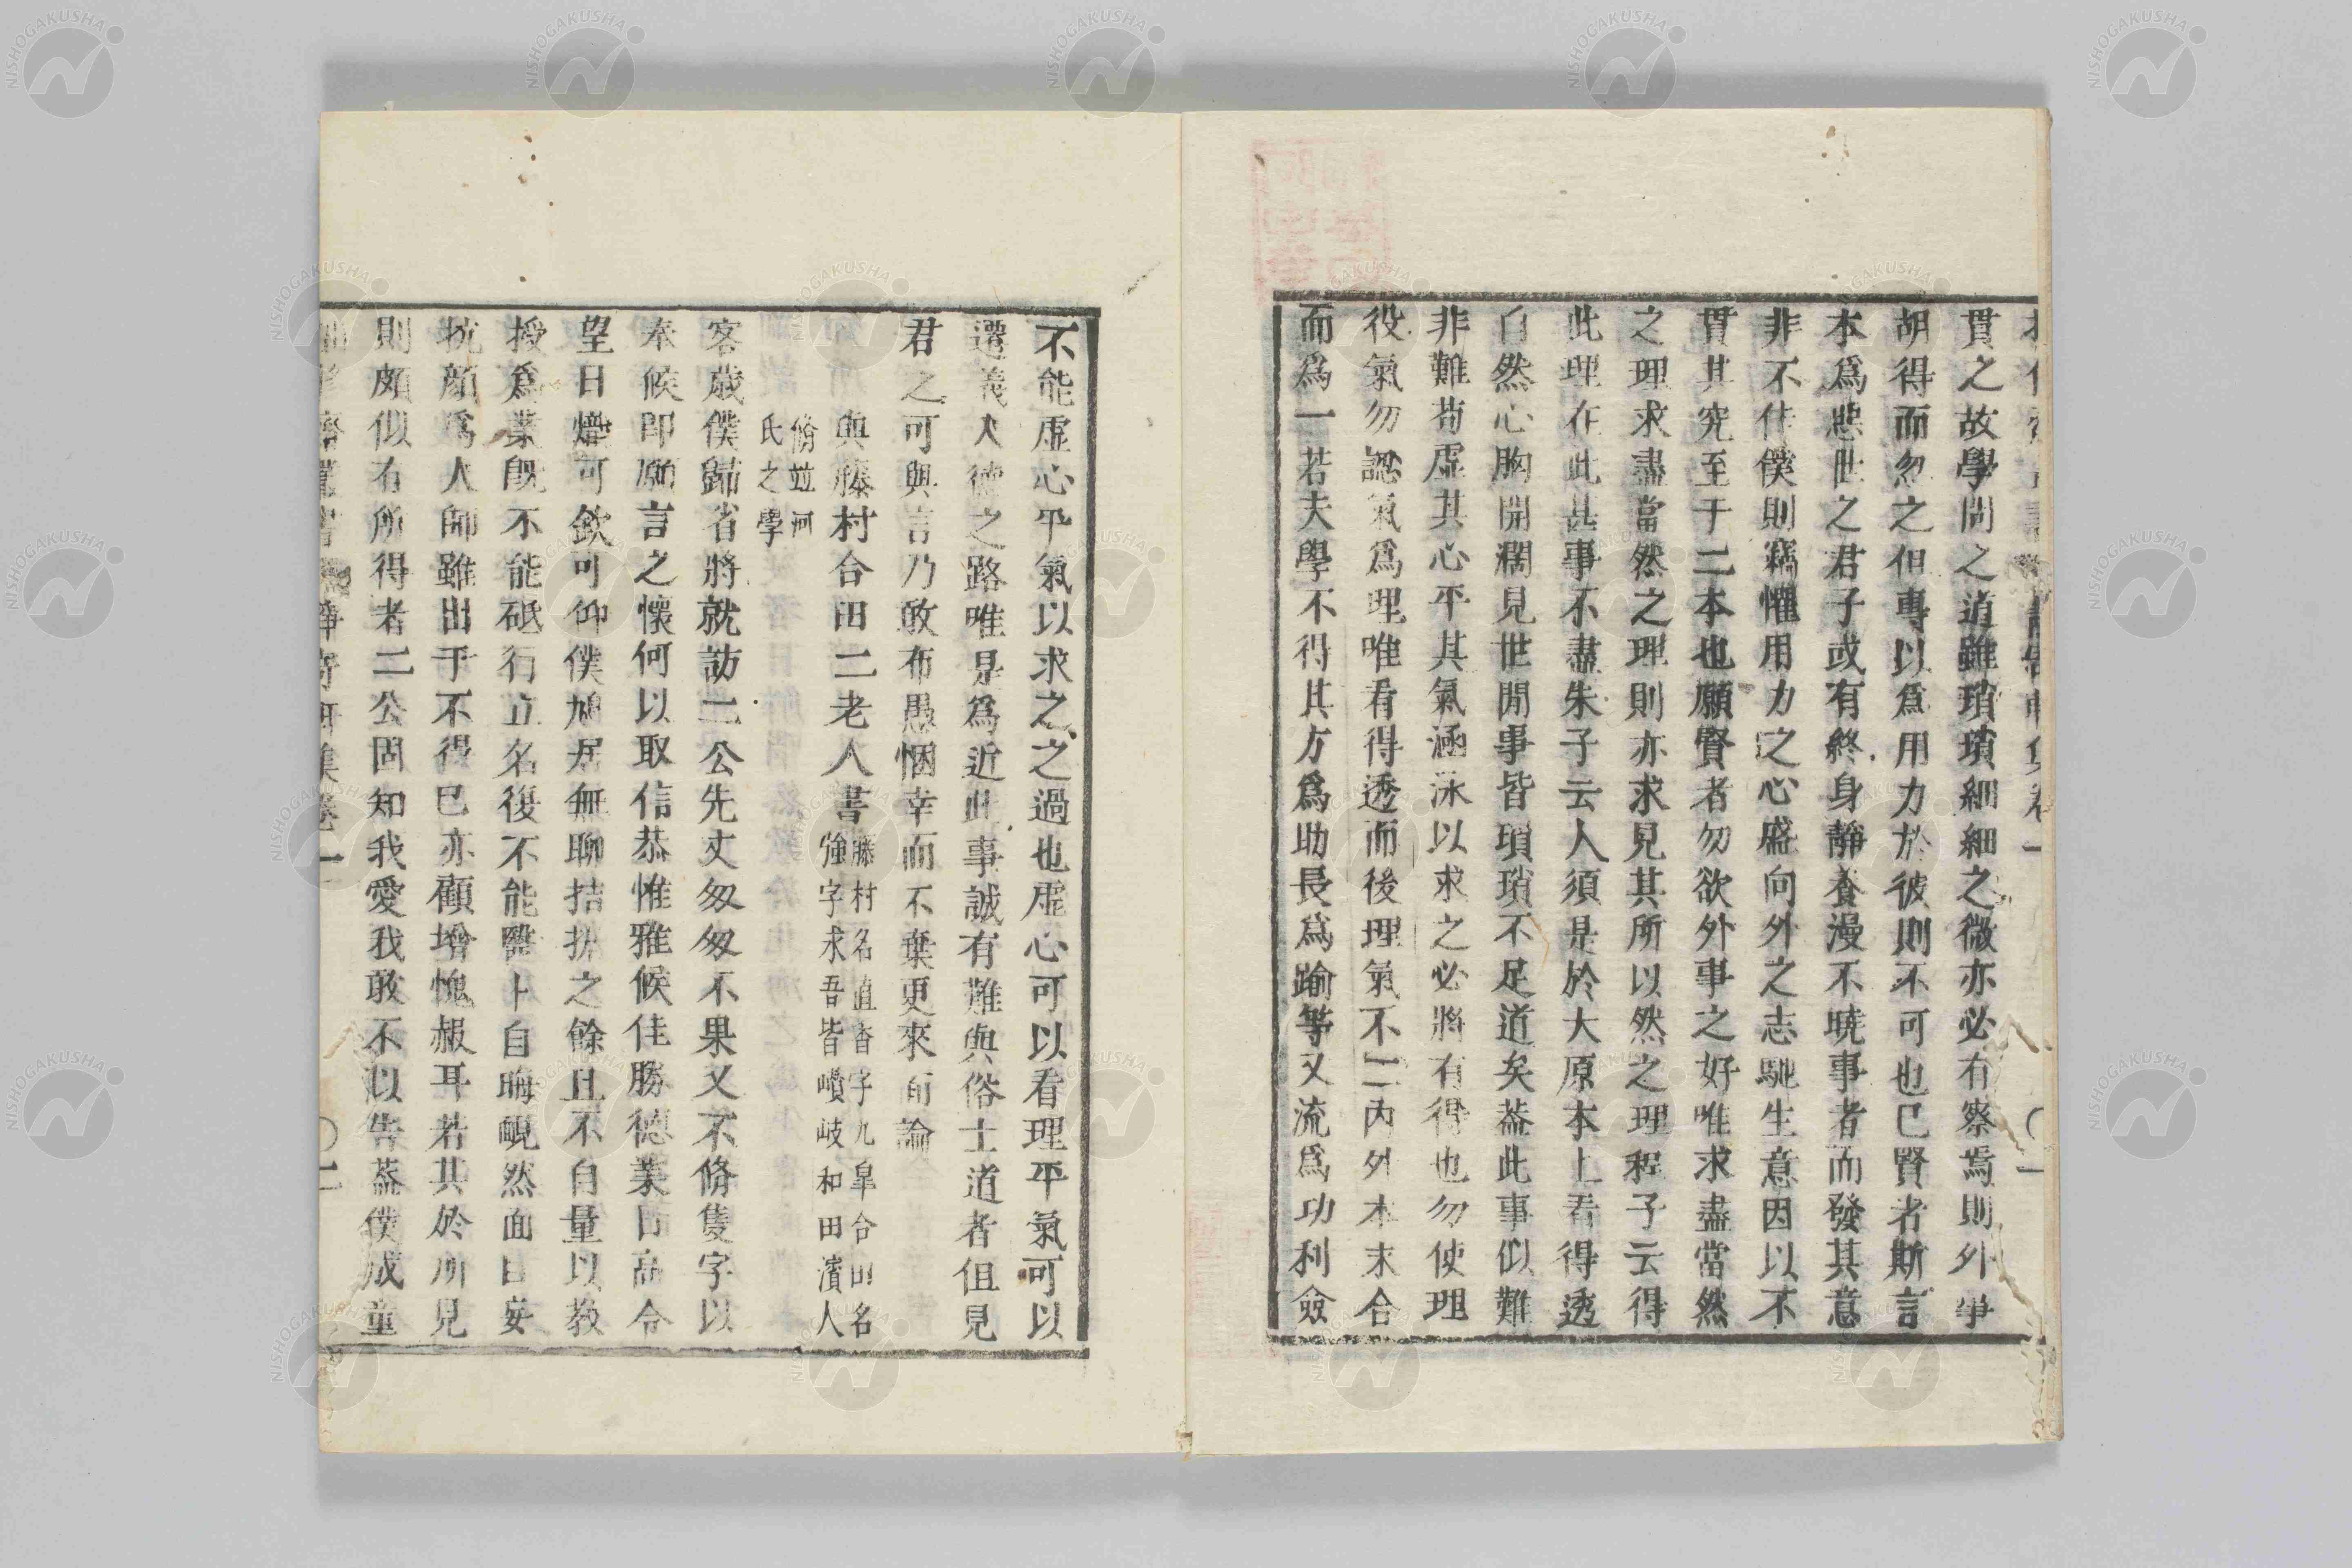 貫之故學問之道雖瑣瑣細細之微亦必有察焉則外爭
胡得而忽之但專以爲用力於彼則不可也已賢者斯言
本爲悲世之君子或有終身靜養漫不曉事者而發其意
非不佳僕則竊懼用力之心盛向外之志馳生意因以不
貫其究至于二本也願賢者勿欲外事之好唯求盡當然
之理求盡當然之理則亦求見其所以然之理程子云得
此理在此甚事不盡朱子云人須是於大原本上看得透
自然心胸開濶見世閒事皆瑣瑣不足道矣葢此事似難
非難苟虛其心平其氣涵泳以求之必將有得也勿使理
役氣勿認氣爲理唯看得透而後理氣不二內外本末合
而爲一若夫學不得其方爲助長爲踰等又流爲功利僉
不能虛心平氣以求之之過也虛心可以看理平氣可以
遷義入德之路唯是爲近此事誠有難與俗士道者但見
君之可與言乃敢布愚悃幸而不棄更來面論
與藤村合田二老人書
藤村名直香字九皐合田名
強字求吾皆巑岐和田濱人
脩竝河
氏之學
客歲僕歸省將就訪二公先丈匆匆不果又不脩隻字以
奉候卽願言之懷何以取信恭惟雅候佳勝德業日高令
望日熾可欽可仰僕旭居無聊拮据之餘且不自量以敎
授爲業旣不能砥行立名復不能醫卜自晦靦然面目妄
抗顏爲人師雖出于不得已亦顧增愧赧耳若其於所見
則頗似有所得者二公固知我愛我敢不以告葢僕成童
NISHOGAKUSHA